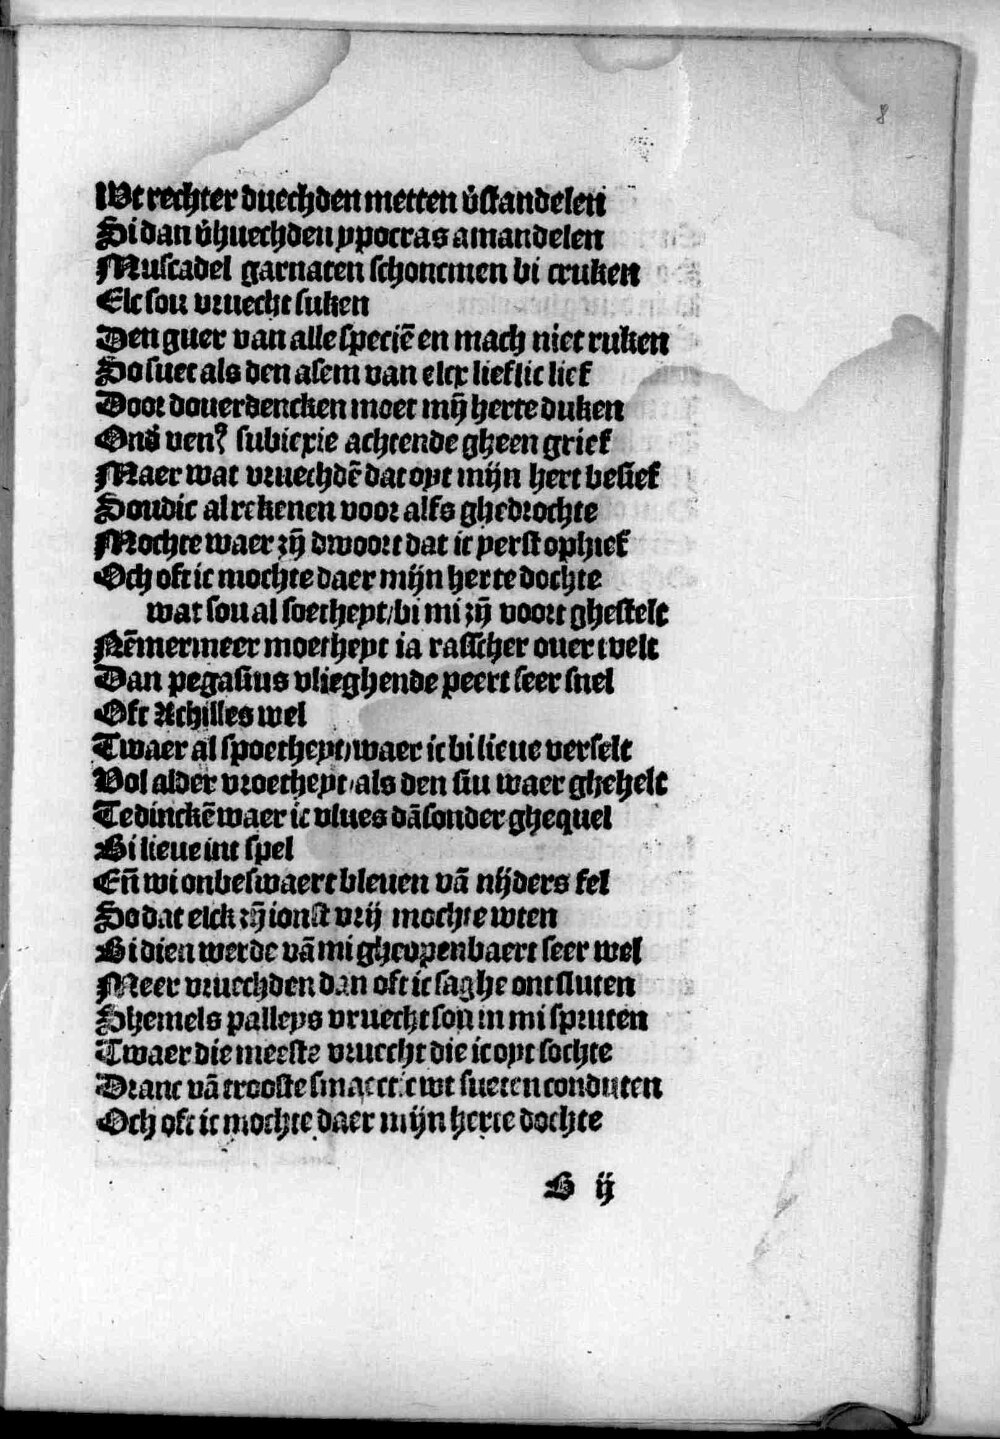 8
Wt rechter duechden metten v̄standelen
Si dan v̄huechden ypocras amandelen
Muscadel garnaten schoncmen bi cruken
Elc sou vruecht suken
Den guer van alle speciē en mach niet ruken
So suet als den asem van elcx lieflic lief
Door douerdencken moet mij̄ herte duken
Onð venꝰ subiexie achtende gheen grief
Maer wat vruechdē dat oyt mijn hert besief
Soudic al rekenen voor alfs ghedrochte
Mochte waer zij̄ dwoort dat ic perst ophief
Och oft ic mochte daer mijn herte dochte
wat sou al soetheyt/bi mi zij̄ voort ghestelt
Nēmermeer moetheyt ia rasscher ouer tvelt
Dan pegasius vlieghende peert seer snel
Oft Achilles wel
Twaer al spoetheyt/waer ic bi lieue verselt
Vol alder vroetheyt/als den siu waer ghehelt
Tedinckē waer ic vlues dā sonder ghequel
Bi lieue int spel
Eñ wi onbeswaert bleuen vā nijders fel
So dat elck zij̄ ionst vrij mochte wten
Bi dien werde vā mi gheopenbaert seer wel
Meer vruechden dan oft ic saghe ontsluten
Shemels palleys vruecht sou in mi spruten
Twaer die meeste vruecht die ic oyt sochte
Dranc vā trooste smaectic wt sueten conduten
Och oft ic mochte daer mijn herte dochte
B ij